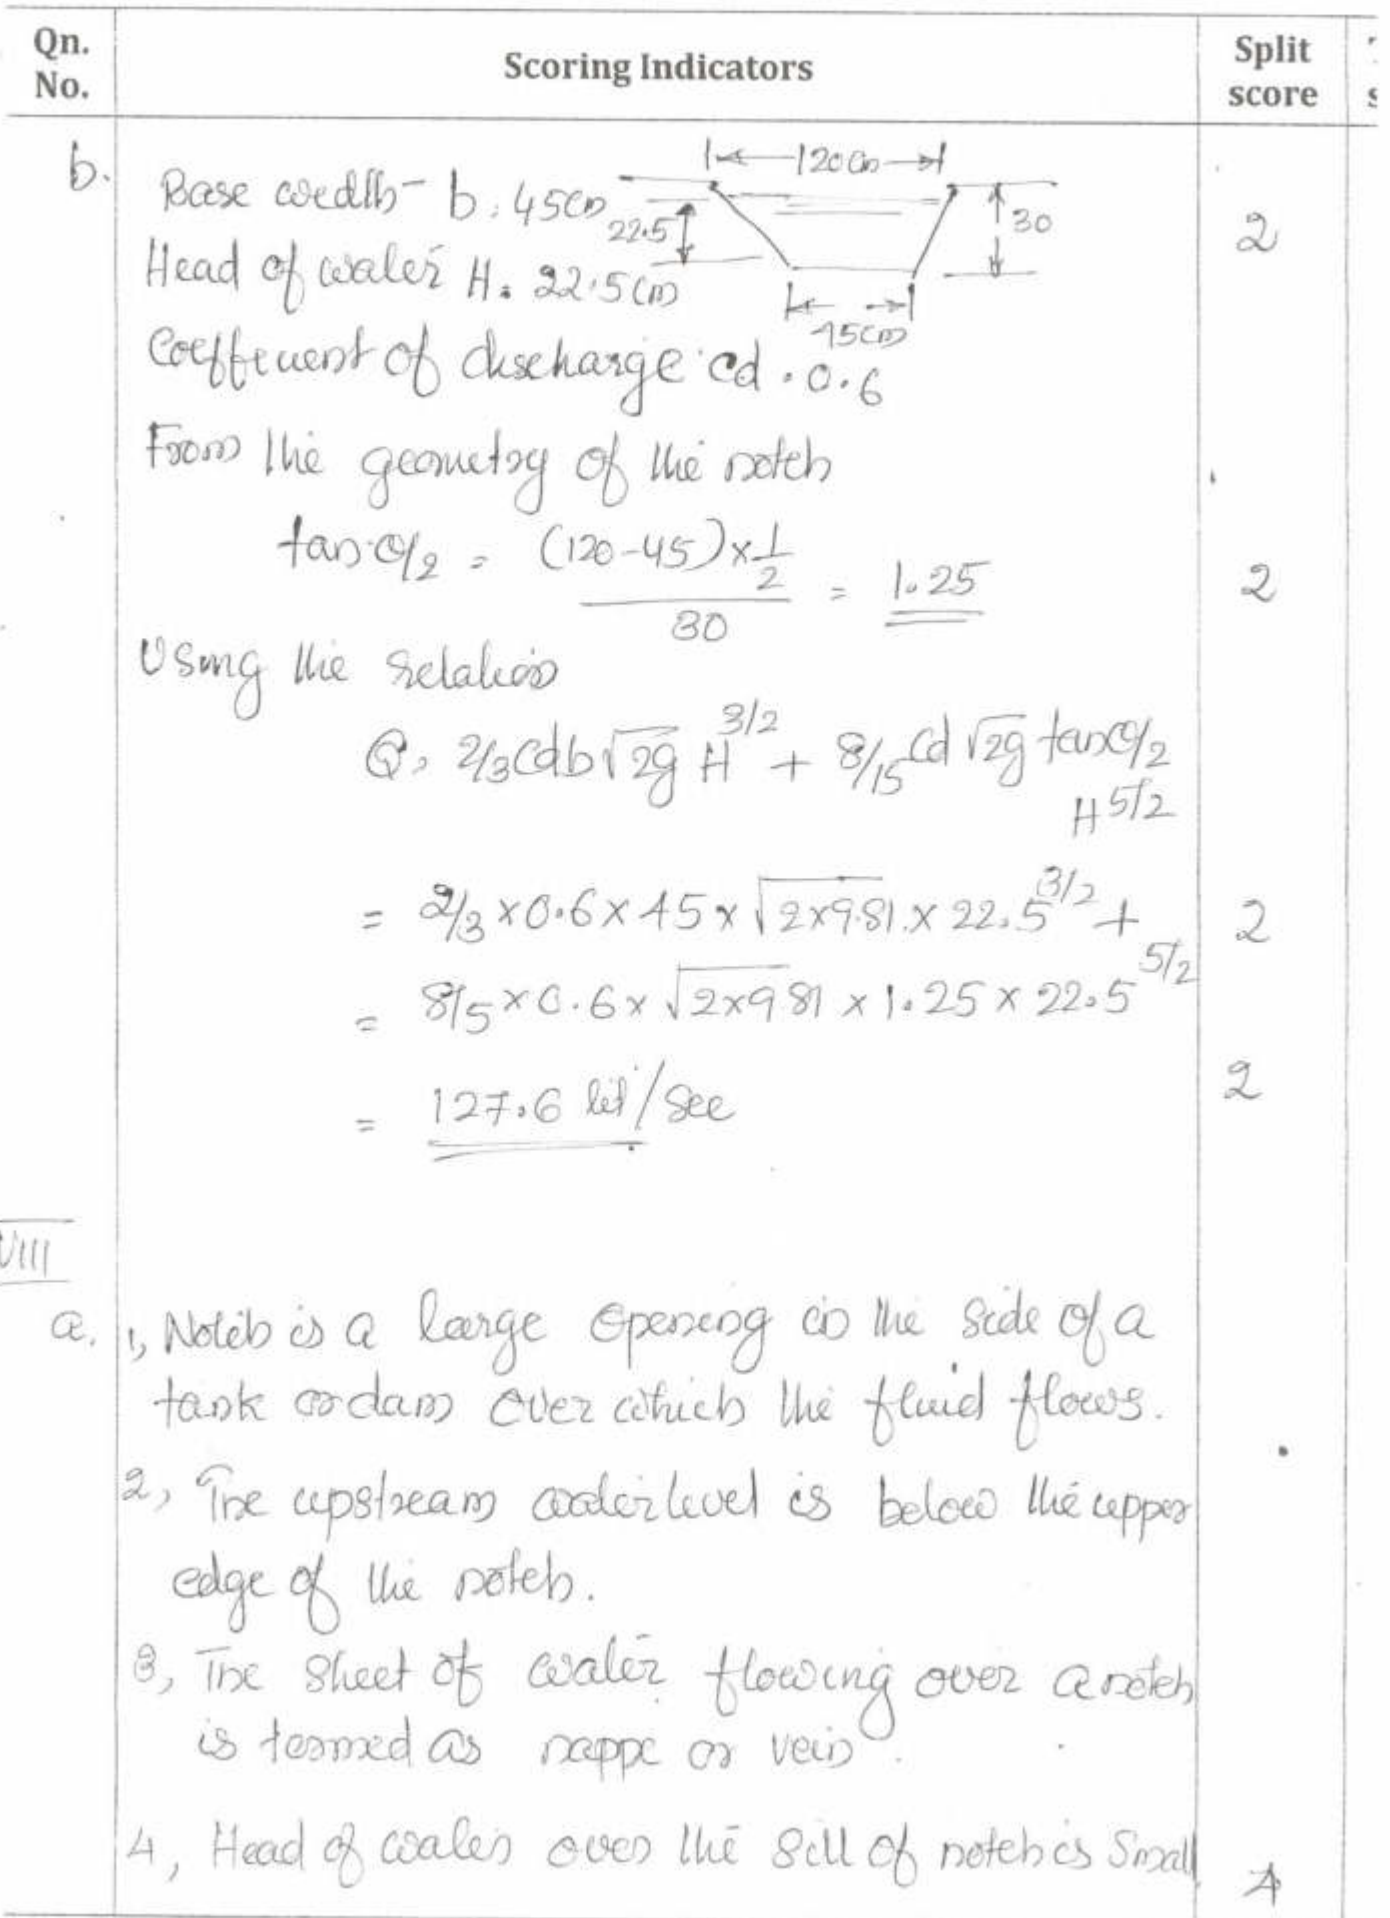 Qn. No.
Scoring Indicators
Split score
b.
120 cm
Base width - b = 45cm
22.5
30
2
Head of water H = 22.5cm
45cm
Coefficient of discharge cd = 0.6
From the geometry of the notch
tan θ/2 = (120-45)×1/2 / 30 = 1.25
2
Using the relation
Q = 2/3 cd b √2g H^3/2 + 8/15 cd √2g tan θ/2
H^5/2
= 2/3 × 0.6 × 45 × √2×9.81 × 22.5^3/2 +
2
= 8/5 × 0.6 × √2×981 × 1.25 × 22.5^5/2
= 127.6 lit/sec
2
VIII
a. 1, Notch is a large opening in the side of a
tank or dam over which the fluid flows.
2, The upstream water level is below the upper
edge of the notch.
3, The sheet of water flowing over a notch
is termed as nappe or vein.
4, Head of water over the sill of notch is small
4